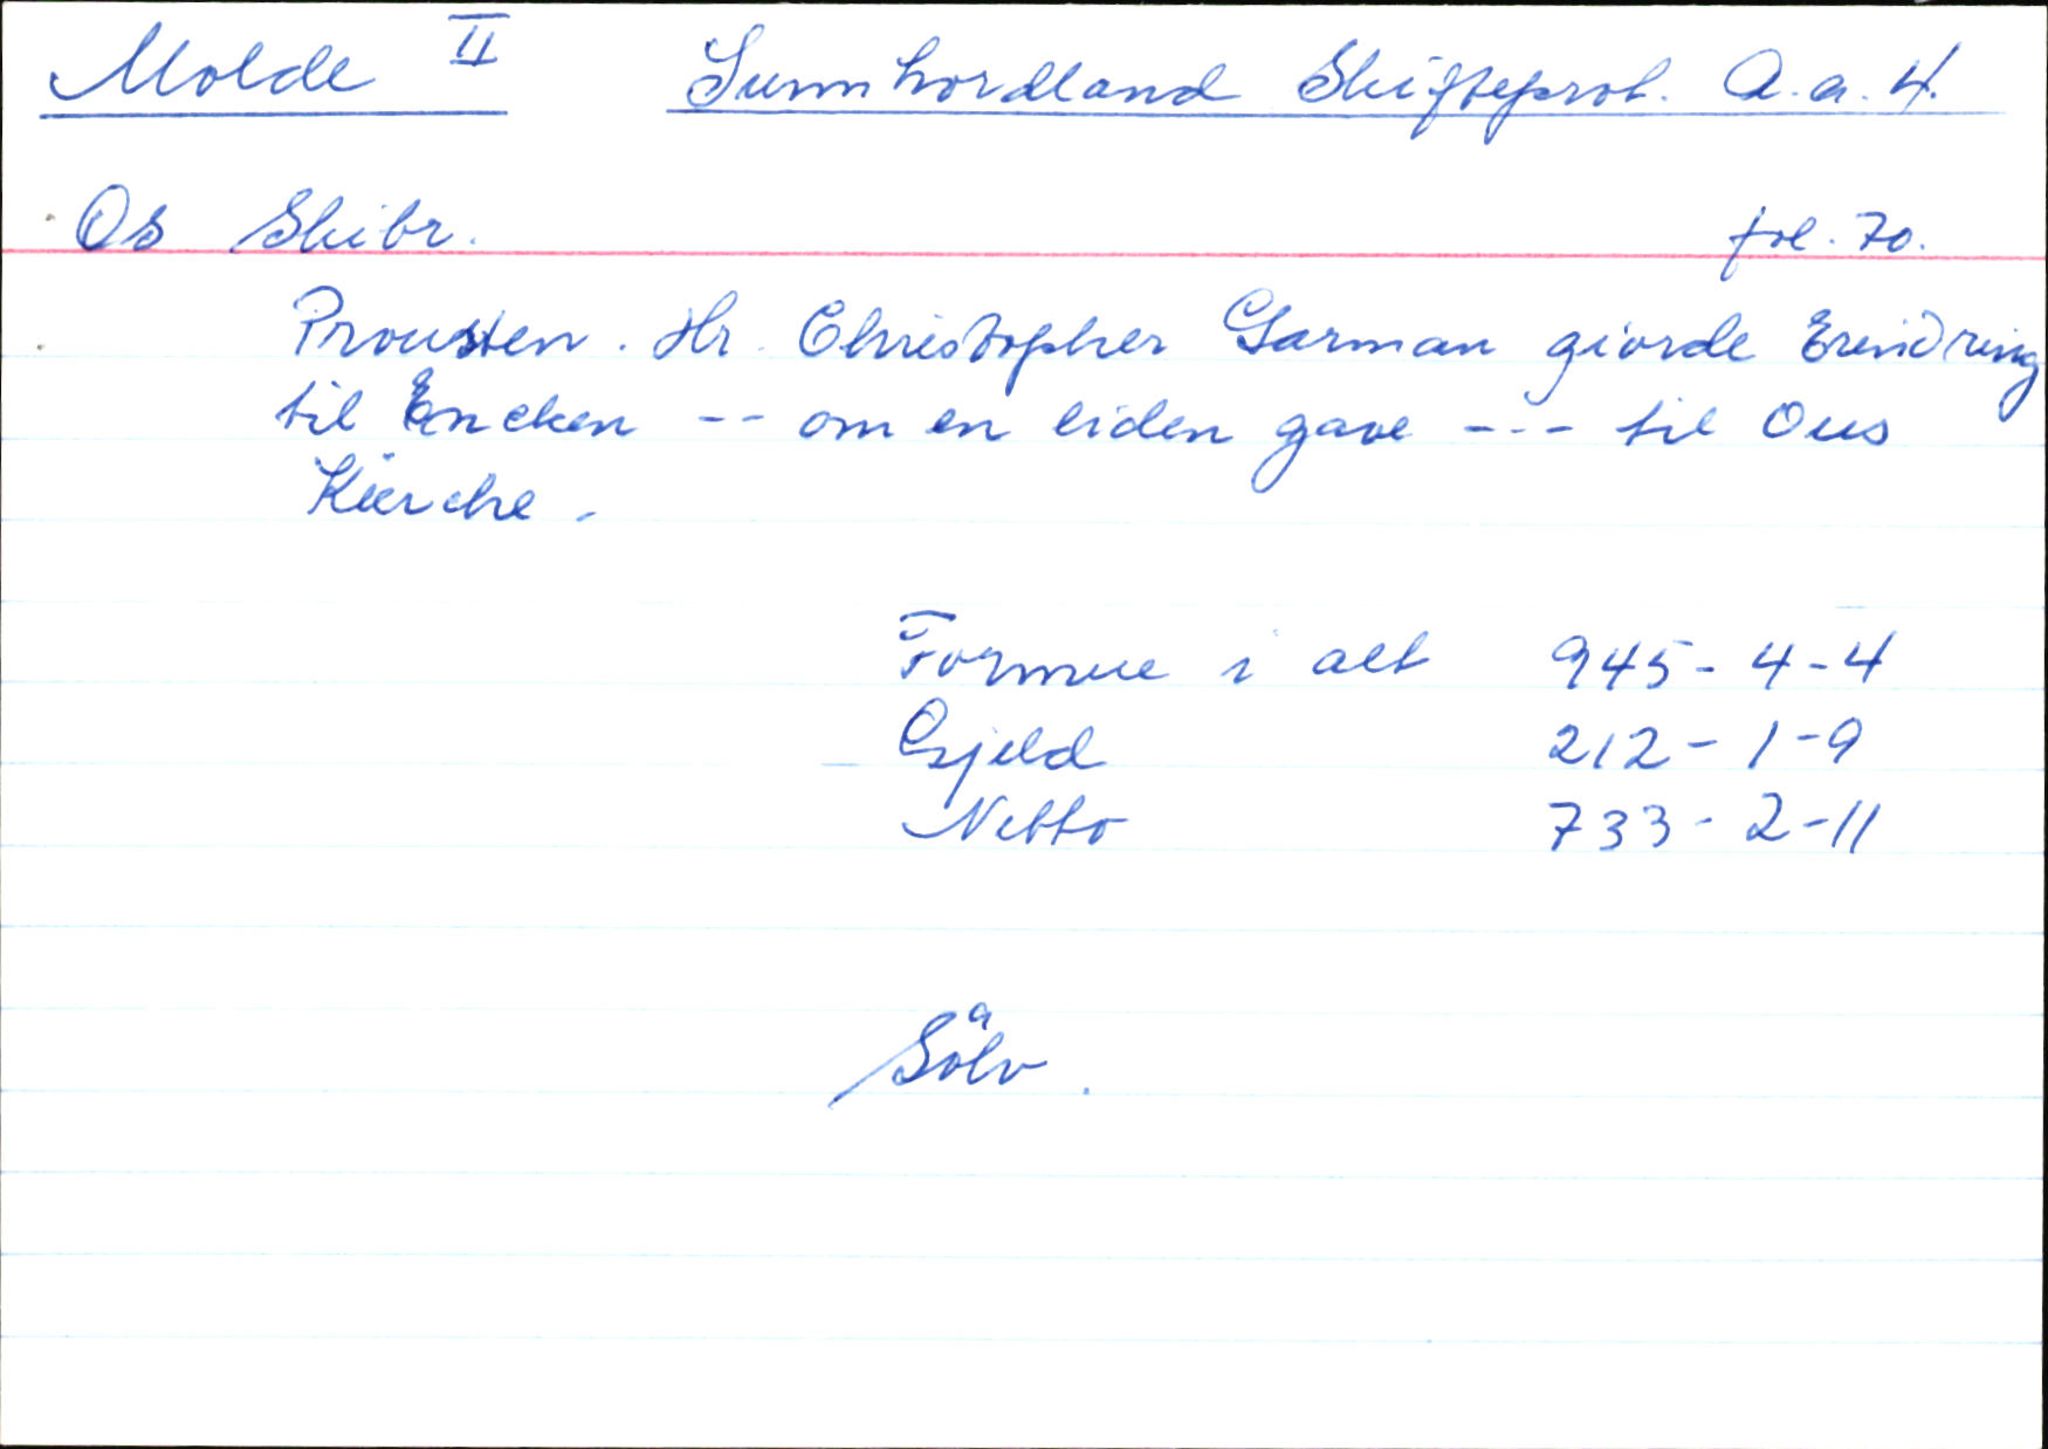 Molde II Sunnhordland Skifteprot. A.a.4.
Os Skibr. fol. 70.
Prousten. Hr. Christopher Garman giorde Erindring
til Encken -- om en liden gave --- til Ous
Kierche.
Formue i alt 945-4-4
Gjeld 212-1-9
Netto 733-2-11
Sölv.